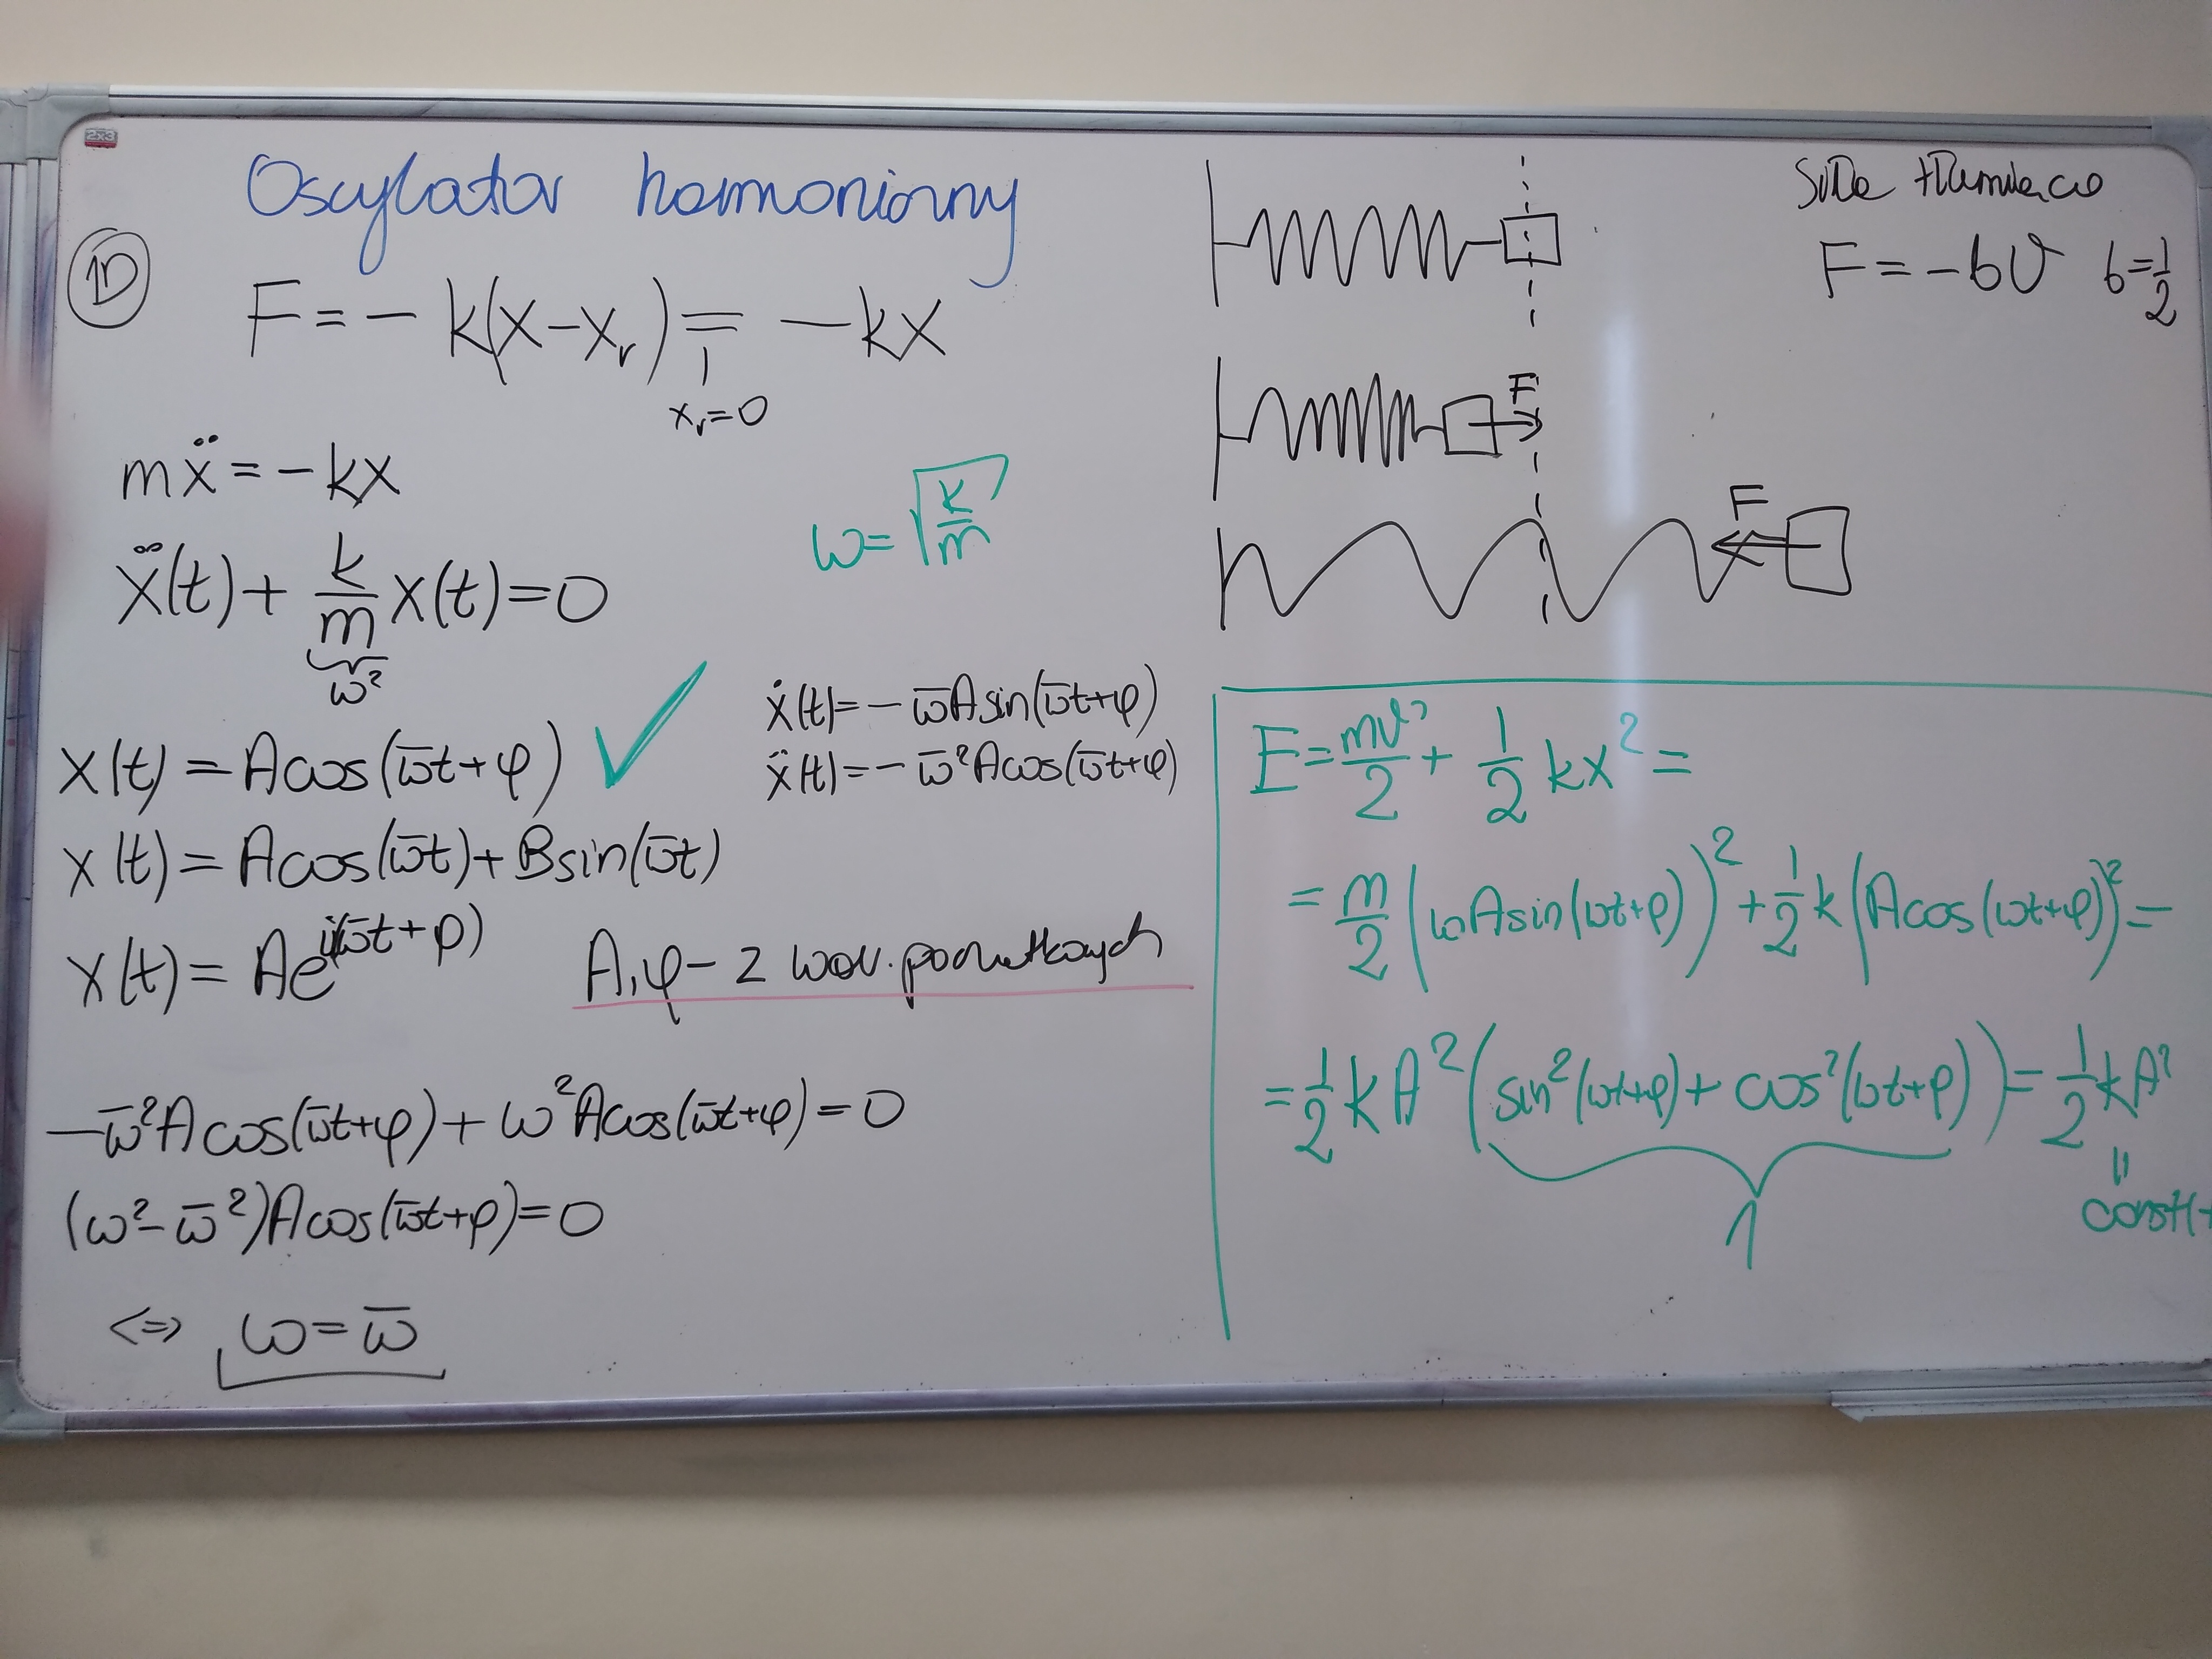 Oscylator harmoniczny
1D
F = - k(x-xᵣ) = -kx
xᵣ=0
mẍ = -kx
ω = √(k/m)
ẍ(t) + k/m x(t) = 0
ω²
x(t) = Acos(ω̅t+φ) ✓
x(t) = Acos(ω̅t) + Bsin(ω̅t)
x(t) = Ae^(i(ω̅t+φ))
ẋ(t) = - ω̅Asin(ω̅t+φ)
ẍ(t) = - ω̅²Acos(ω̅t+φ)
A, φ - z war. początkowych
-ω̅²Acos(ω̅t+φ) + ω²Acos(ω̅t+φ) = 0
(ω²-ω̅²)Acos(ω̅t+φ) = 0
<=> ω = ω̅
F
F
Siła tłumiąca
F = -bv b=1/2
E = mv²/2 + 1/2 kx² =
= m/2 (ωAsin(ωt+φ))² + 1/2 k(Acos(ωt+φ))² =
= 1/2 kA² (sin²(ωt+φ) + cos²(ωt+φ)) = 1/2 kA²
1
=
const(t